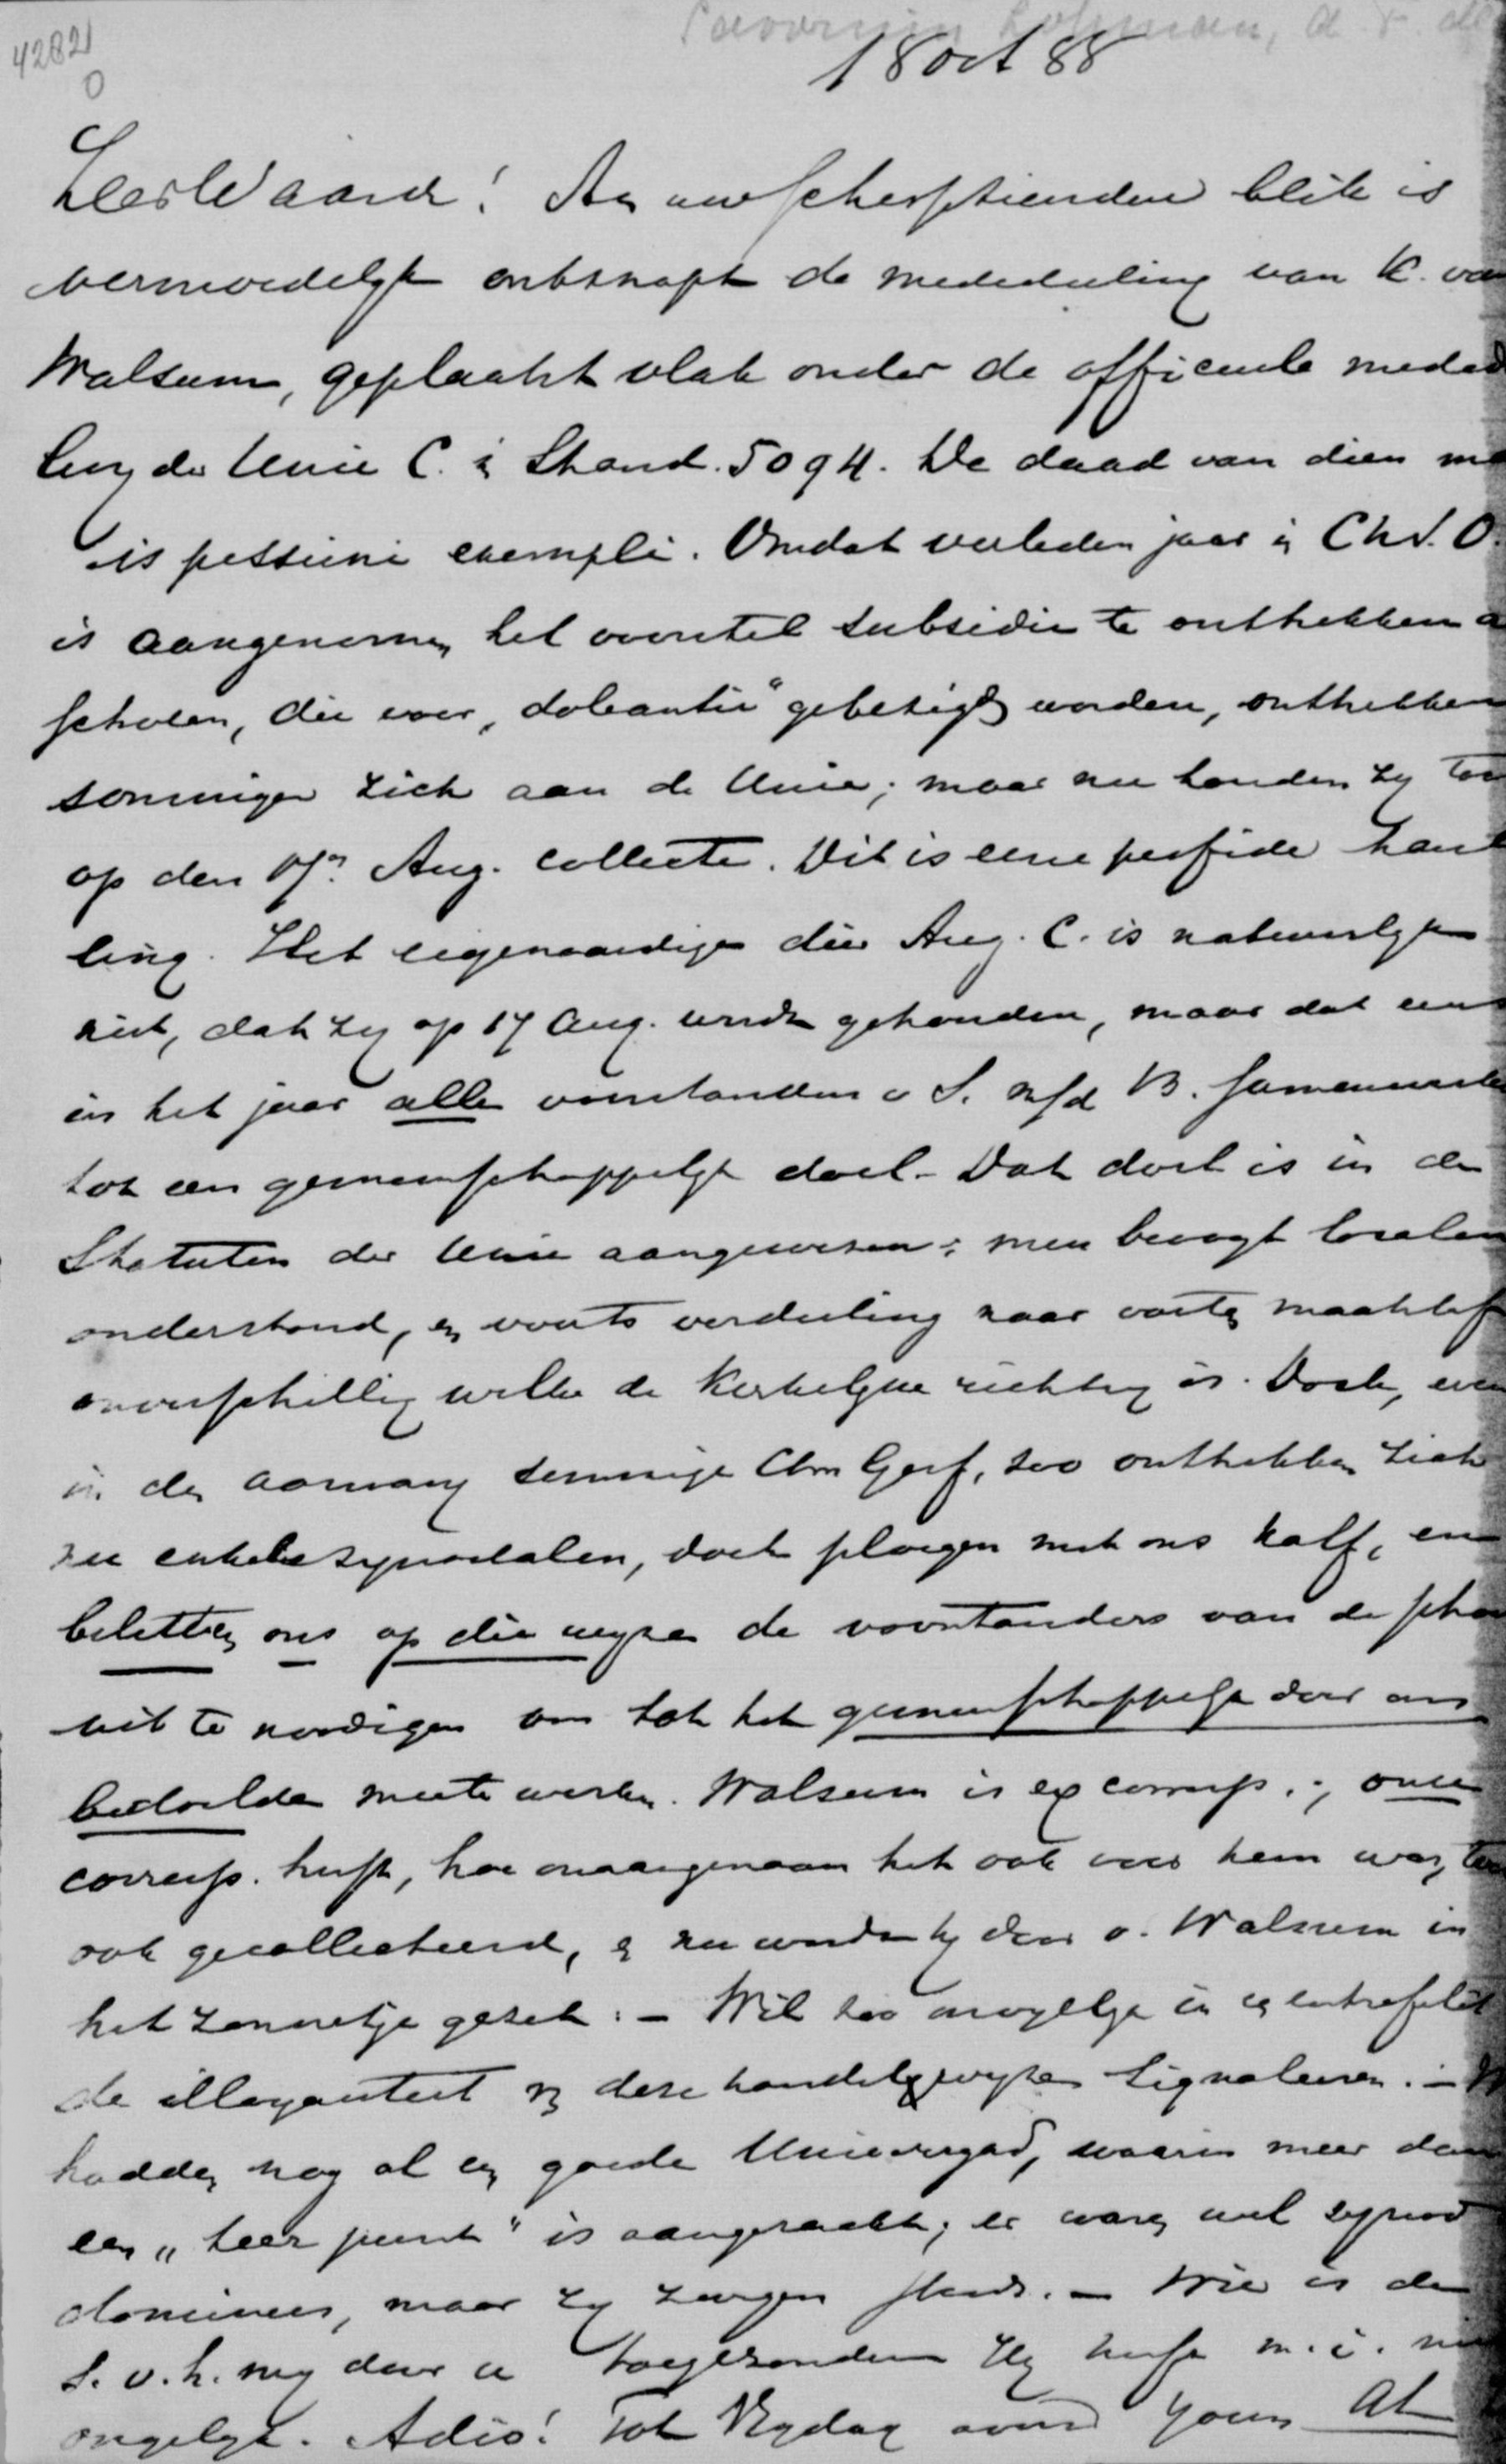 42821
0
Savornin Lohman, A. F. de
18 Oct 88
ZeerWaarde! Aan uw scherpzienden blik is
vermoedelyk ontsnapt de mededeeling van K. van
Walsum, geplaatst vlak onder de officieele meded
ling der Unie C. in Stand. 5094. De daad van dien ma
is pessimi exempli. Omdat verleden jaar in Chr. O.
is aangenomen het voorstel subsidie te onttrekken a
scholen, die voor „doleantie" gebezigd worden, onttrekken
sommigen zich aan de Unie; maar nu houden zy toch
op den 17n Aug. collecte. Dit is eene perfide hande
ling. Het eigenaardige dier Aug. C. is natuurlyk
niet, dat zy op 17 Aug. wordt gehouden, maar dat eens
in het jaar alle voorstanders v S. m/d B. samenwerken
tot een gemeenschappelyk doel. Dat doel is in de
Statuten der Unie aangewezen: men beoogt localen
onderstand, en voorts verdeeling naar vaste maatstaf
onverschillig welke de kerkelyke richting is. Doch, even
in den aanvang sommige Chr Geref, zoo onttrekken zich
nu enkele synodalen, doch ploegen met ons kalf, en
beletten ons op die wyze de voorstanders van de scho
uit te noodigen om tot het gemeenschappelyk door ons
bedoelde mee te werken. Walsum is ex corresp.; onze
corresp. heeft, hoe onaangenaam het ook voor hem was, toch
ook gecollecteerd, en nu wordt hy door v. Walsum in
het zonnetje gezet. – Wil zoo mogelyk in een entrefilet
de illoyauteit van deze handelwyze signaleren. – W
hadden nog al een goede Unievergad, waarin meer dan
een „teer punt" is aangeraakt; er waren wel synod
dominees, maar zy zwegen steeds. – Wie is de
S. v. h. my door u toegezonden Hy heeft m. i. niet
ongelyk. Adio! Tot Vrydag avond Yours At